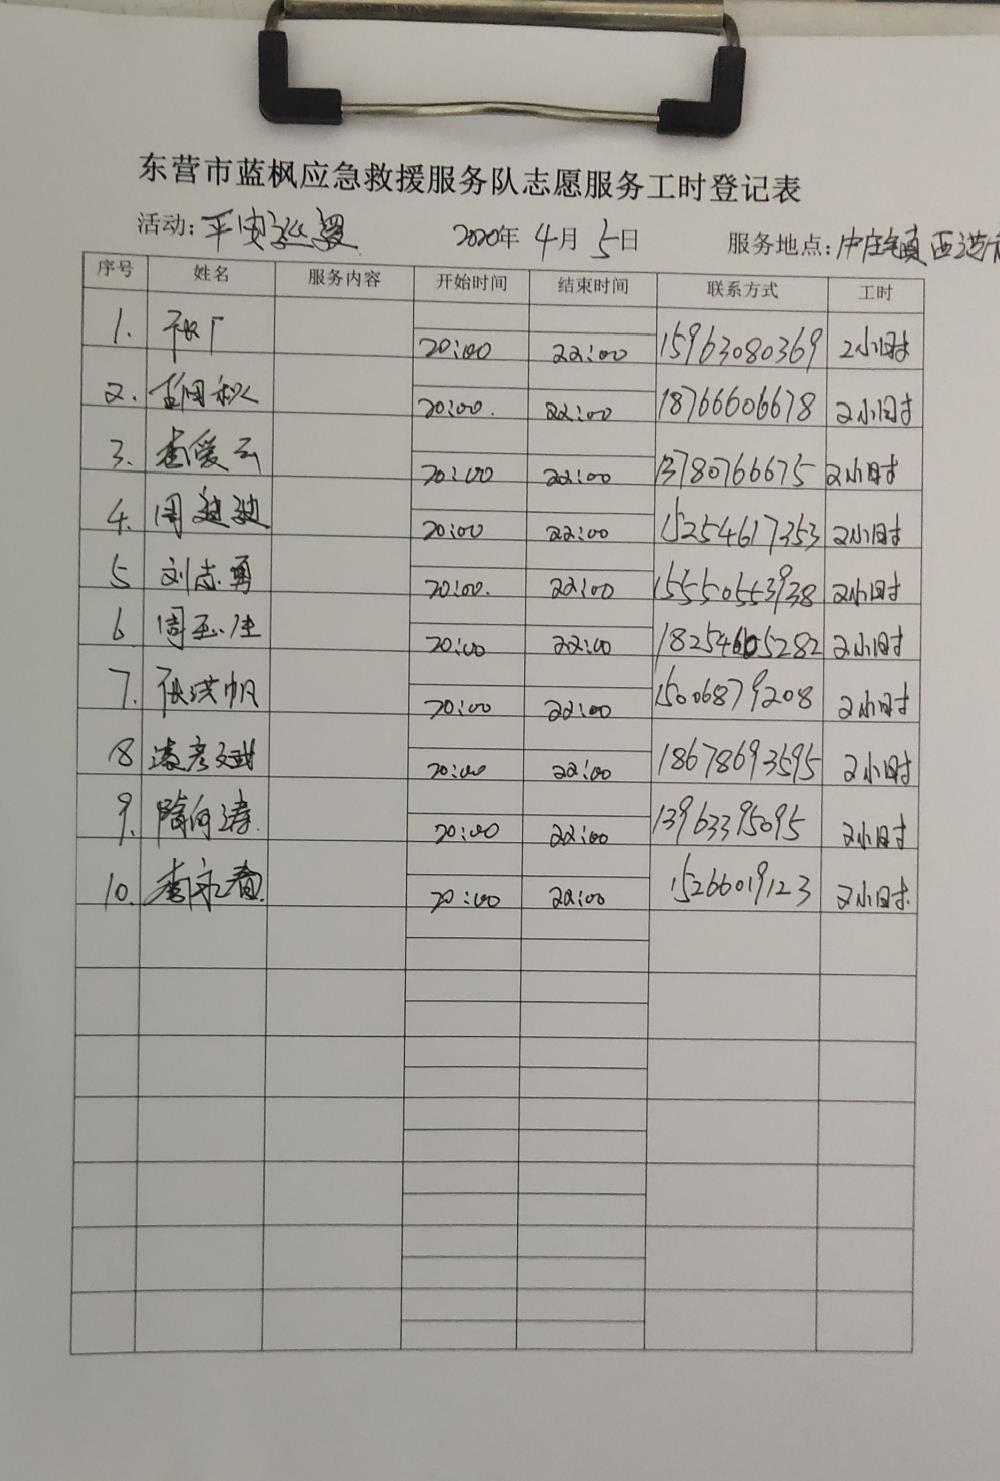 东营市蓝枫应急救援服务队志愿服务工时登记表
活动: 平安巡逻 2020年 4月 5日 服务地点: 中庄镇西洪
序号 姓名 服务内容 开始时间 结束时间 联系方式 工时
1. 20:00 22:00 15963080369 2小时
2. 20:00. 22:00 18766606678 2小时
3. 爱云 20:00 22:00 13780766675 2小时
4. 周 20:00 22:00 15254617353 2小时
5 刘志勇 20:00. 22:00 15550553938 2小时
6 周玉庄 20:00 22:00 18254605282 2小时
7. 张洪帆 20:00 22:00 15006879208 2小时
8 彦斌 20:00 22:00 18678693595 2小时
9. 隋向涛. 20:00 22:00 13963395095 2小时
10. 李永春 20:00 22:00 15266019123 2小时.